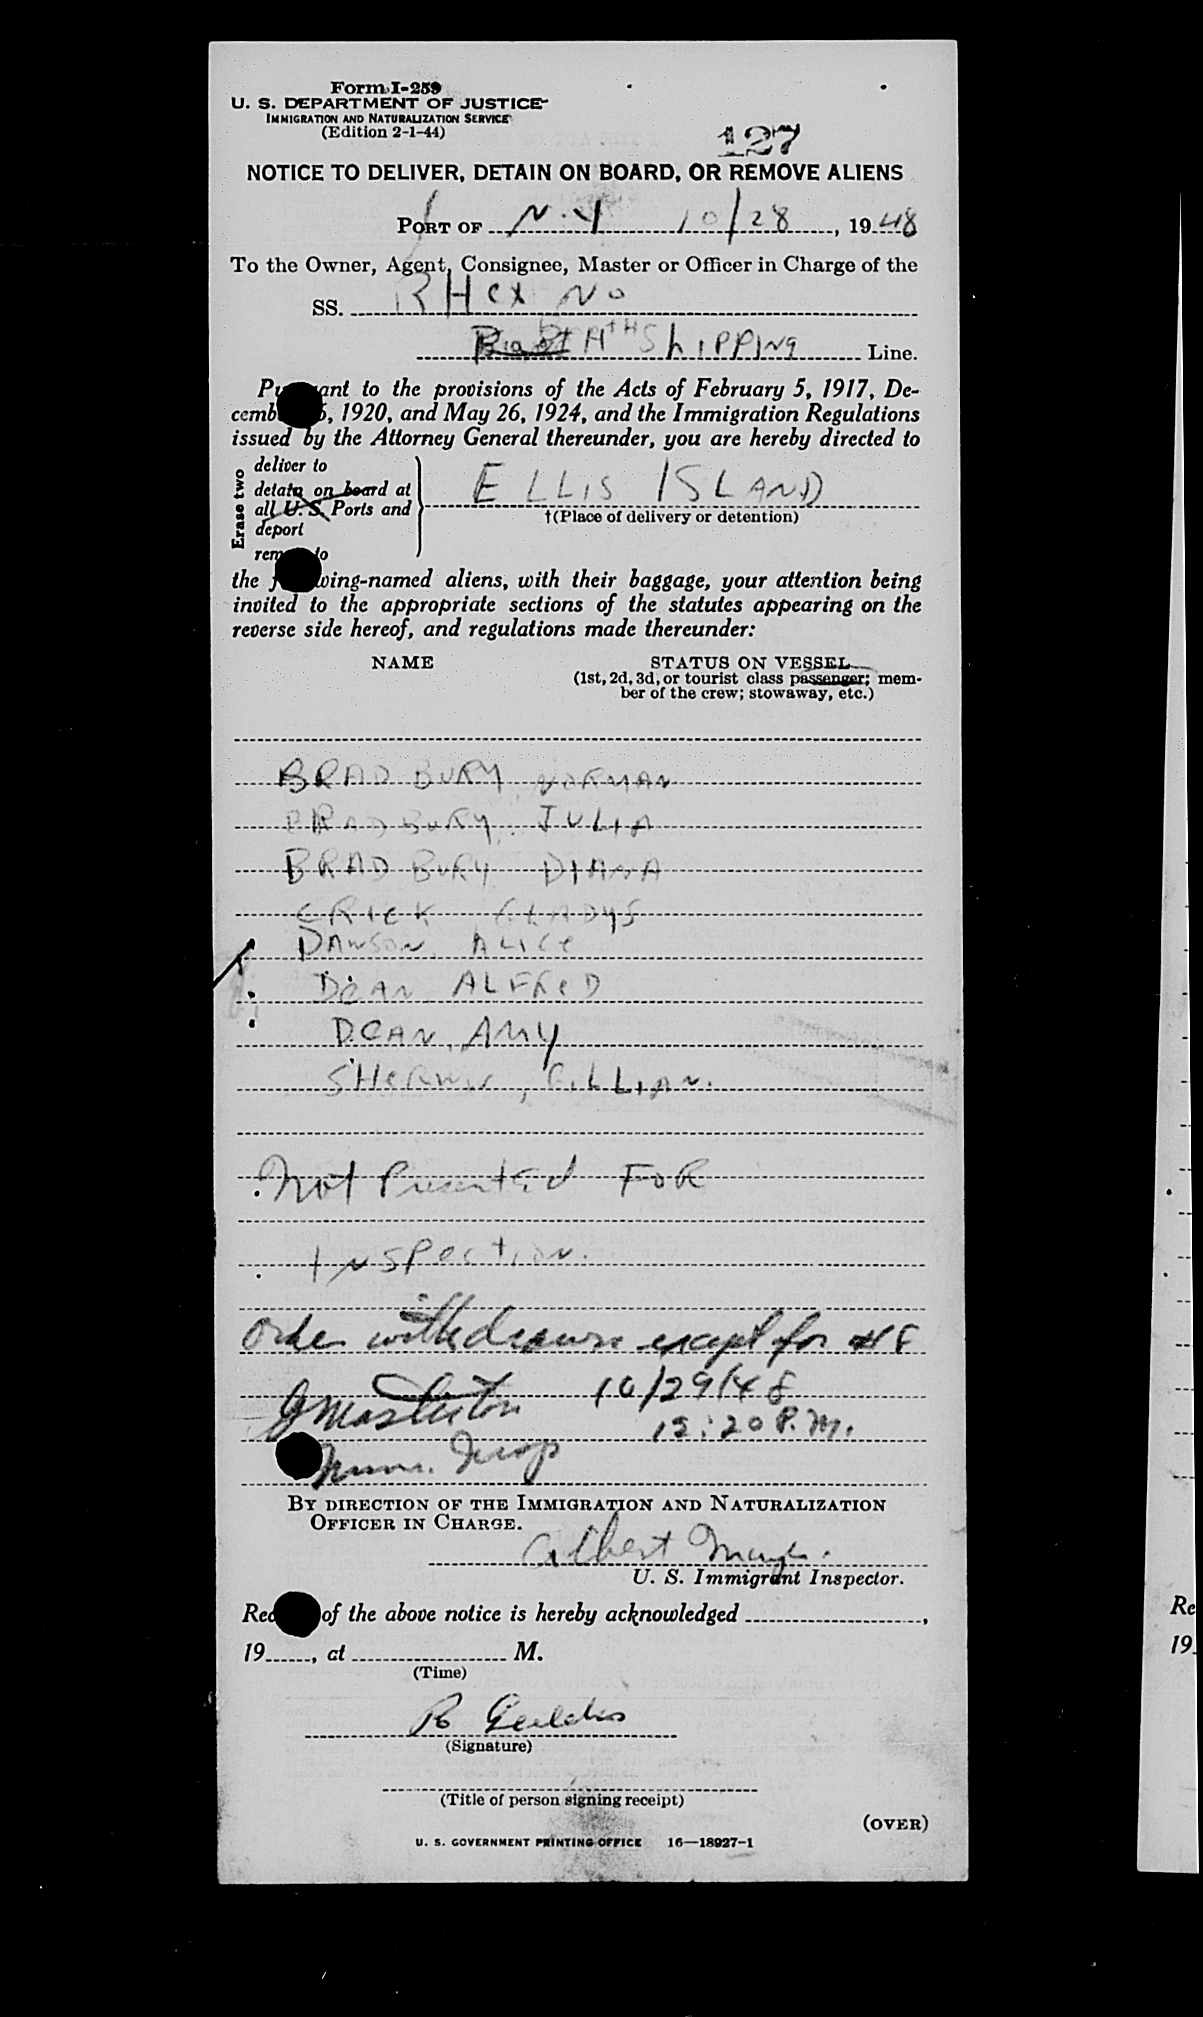 Form I-259
U. S. DEPARTMENT OF JUSTICE
IMMIGRATION AND NATURALIZATION SERVICE
(Edition 2-1-44)
127
NOTICE TO DELIVER, DETAIN ON BOARD, OR REMOVE ALIENS
PORT OF N.Y 10/28, 1948
To the Owner, Agent, Consignee, Master or Officer in Charge of the
SS. RHexNo
BootH SHIPPING Line.
Pu ant to the provisions of the Acts of February 5, 1917, De-
cemb 6, 1920, and May 26, 1924, and the Immigration Regulations
issued by the Attorney General thereunder, you are hereby directed to
Erase two
deliver to
detain on board at
all U. S. Ports and
deport
rem to
ELLIS ISLAND
†(Place of delivery or detention)
the f wing-named aliens, with their baggage, your attention being
invited to the appropriate sections of the statutes appearing on the
reverse side hereof, and regulations made thereunder:
NAME STATUS ON VESSEL
(1st, 2d, 3d, or tourist class passenger; mem-
ber of the crew; stowaway, etc.)
BRADBURY, NORMAN
BRADBURY, JULIA
BRADBURY DIANA
CRICK GLADYS
DAWSON, ALICE
DEAN ALFRED
DEAN, AMY
SHERWIN, GILLIAN.
Not Presented FOR
INSPECTION.
Order withdrawn except for
J Masterton 10/29/48
12:20 P.M.
Imm. Insp
BY DIRECTION OF THE IMMIGRATION AND NATURALIZATION
OFFICER IN CHARGE.
Albert
U. S. Immigrant Inspector.
Rec of the above notice is hereby acknowledged ,
19 , at M.
(Time)
R Geddes
(Signature)
(Title of person signing receipt)
(OVER)
U. S. GOVERNMENT PRINTING OFFICE 16—18927-1
Re
19